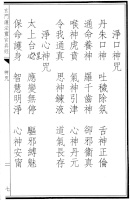 淨口神咒
丹朱口神　吐穢除氛　舌神正倫
通命養神　羅千齒神　卻邪衛真
喉神虎賁　氣神引津　心神丹元
令我通真　思神鍊液　道氣長存
淨心神咒
太上台星　應變無停　驅邪縛魅
保命護身　智慧明淨　心神安寧
七